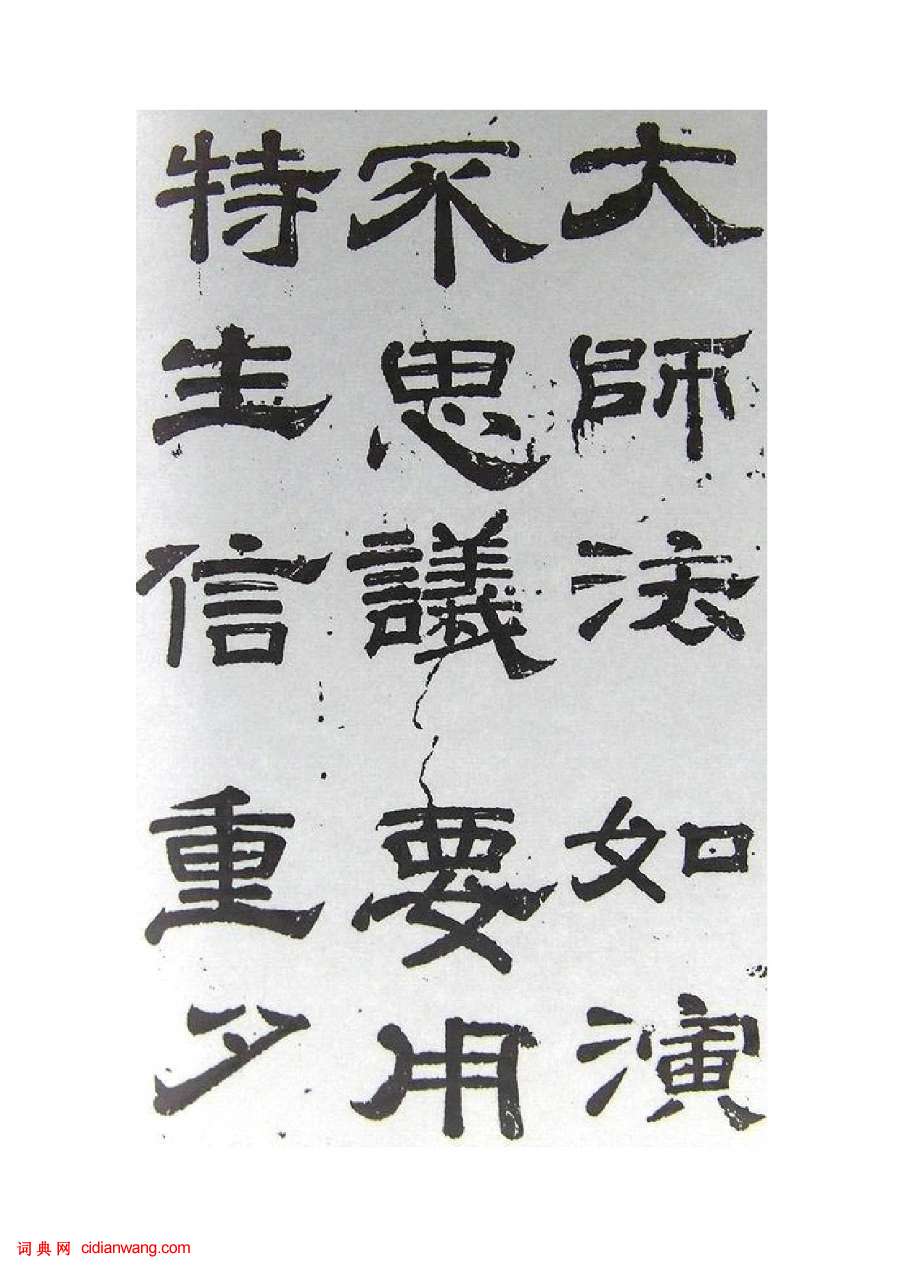 大師法如演
不思議要用
特生信重夕
词典网 cidianwang.com